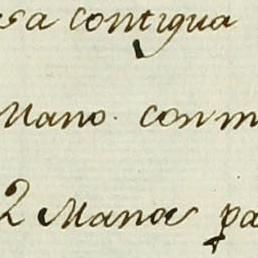 sa contigua
Mano. con m
2 Manos pa